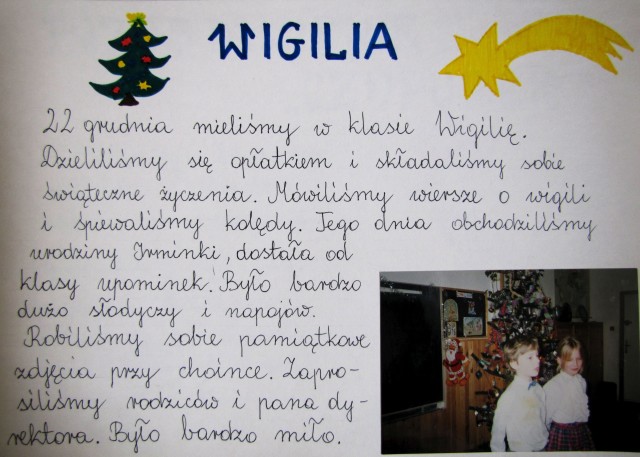 WIGILIA
22 grudnia mieliśmy w klasie Wigilię.
Dzieliliśmy się opłatkiem i składaliśmy sobie
świąteczne życzenia. Mówiliśmy wiersze o wigili
i śpiewaliśmy kolędy. Tego dnia obchodziliśmy
urodziny Irminki, dostała od
klasy upominek. Było bardzo
dużo słodyczy i napojów.
Robiliśmy sobie pamiątkowe
zdjęcia przy choince. Zapro-
siliśmy rodziców i pana dy-
rektora. Było bardzo miło.